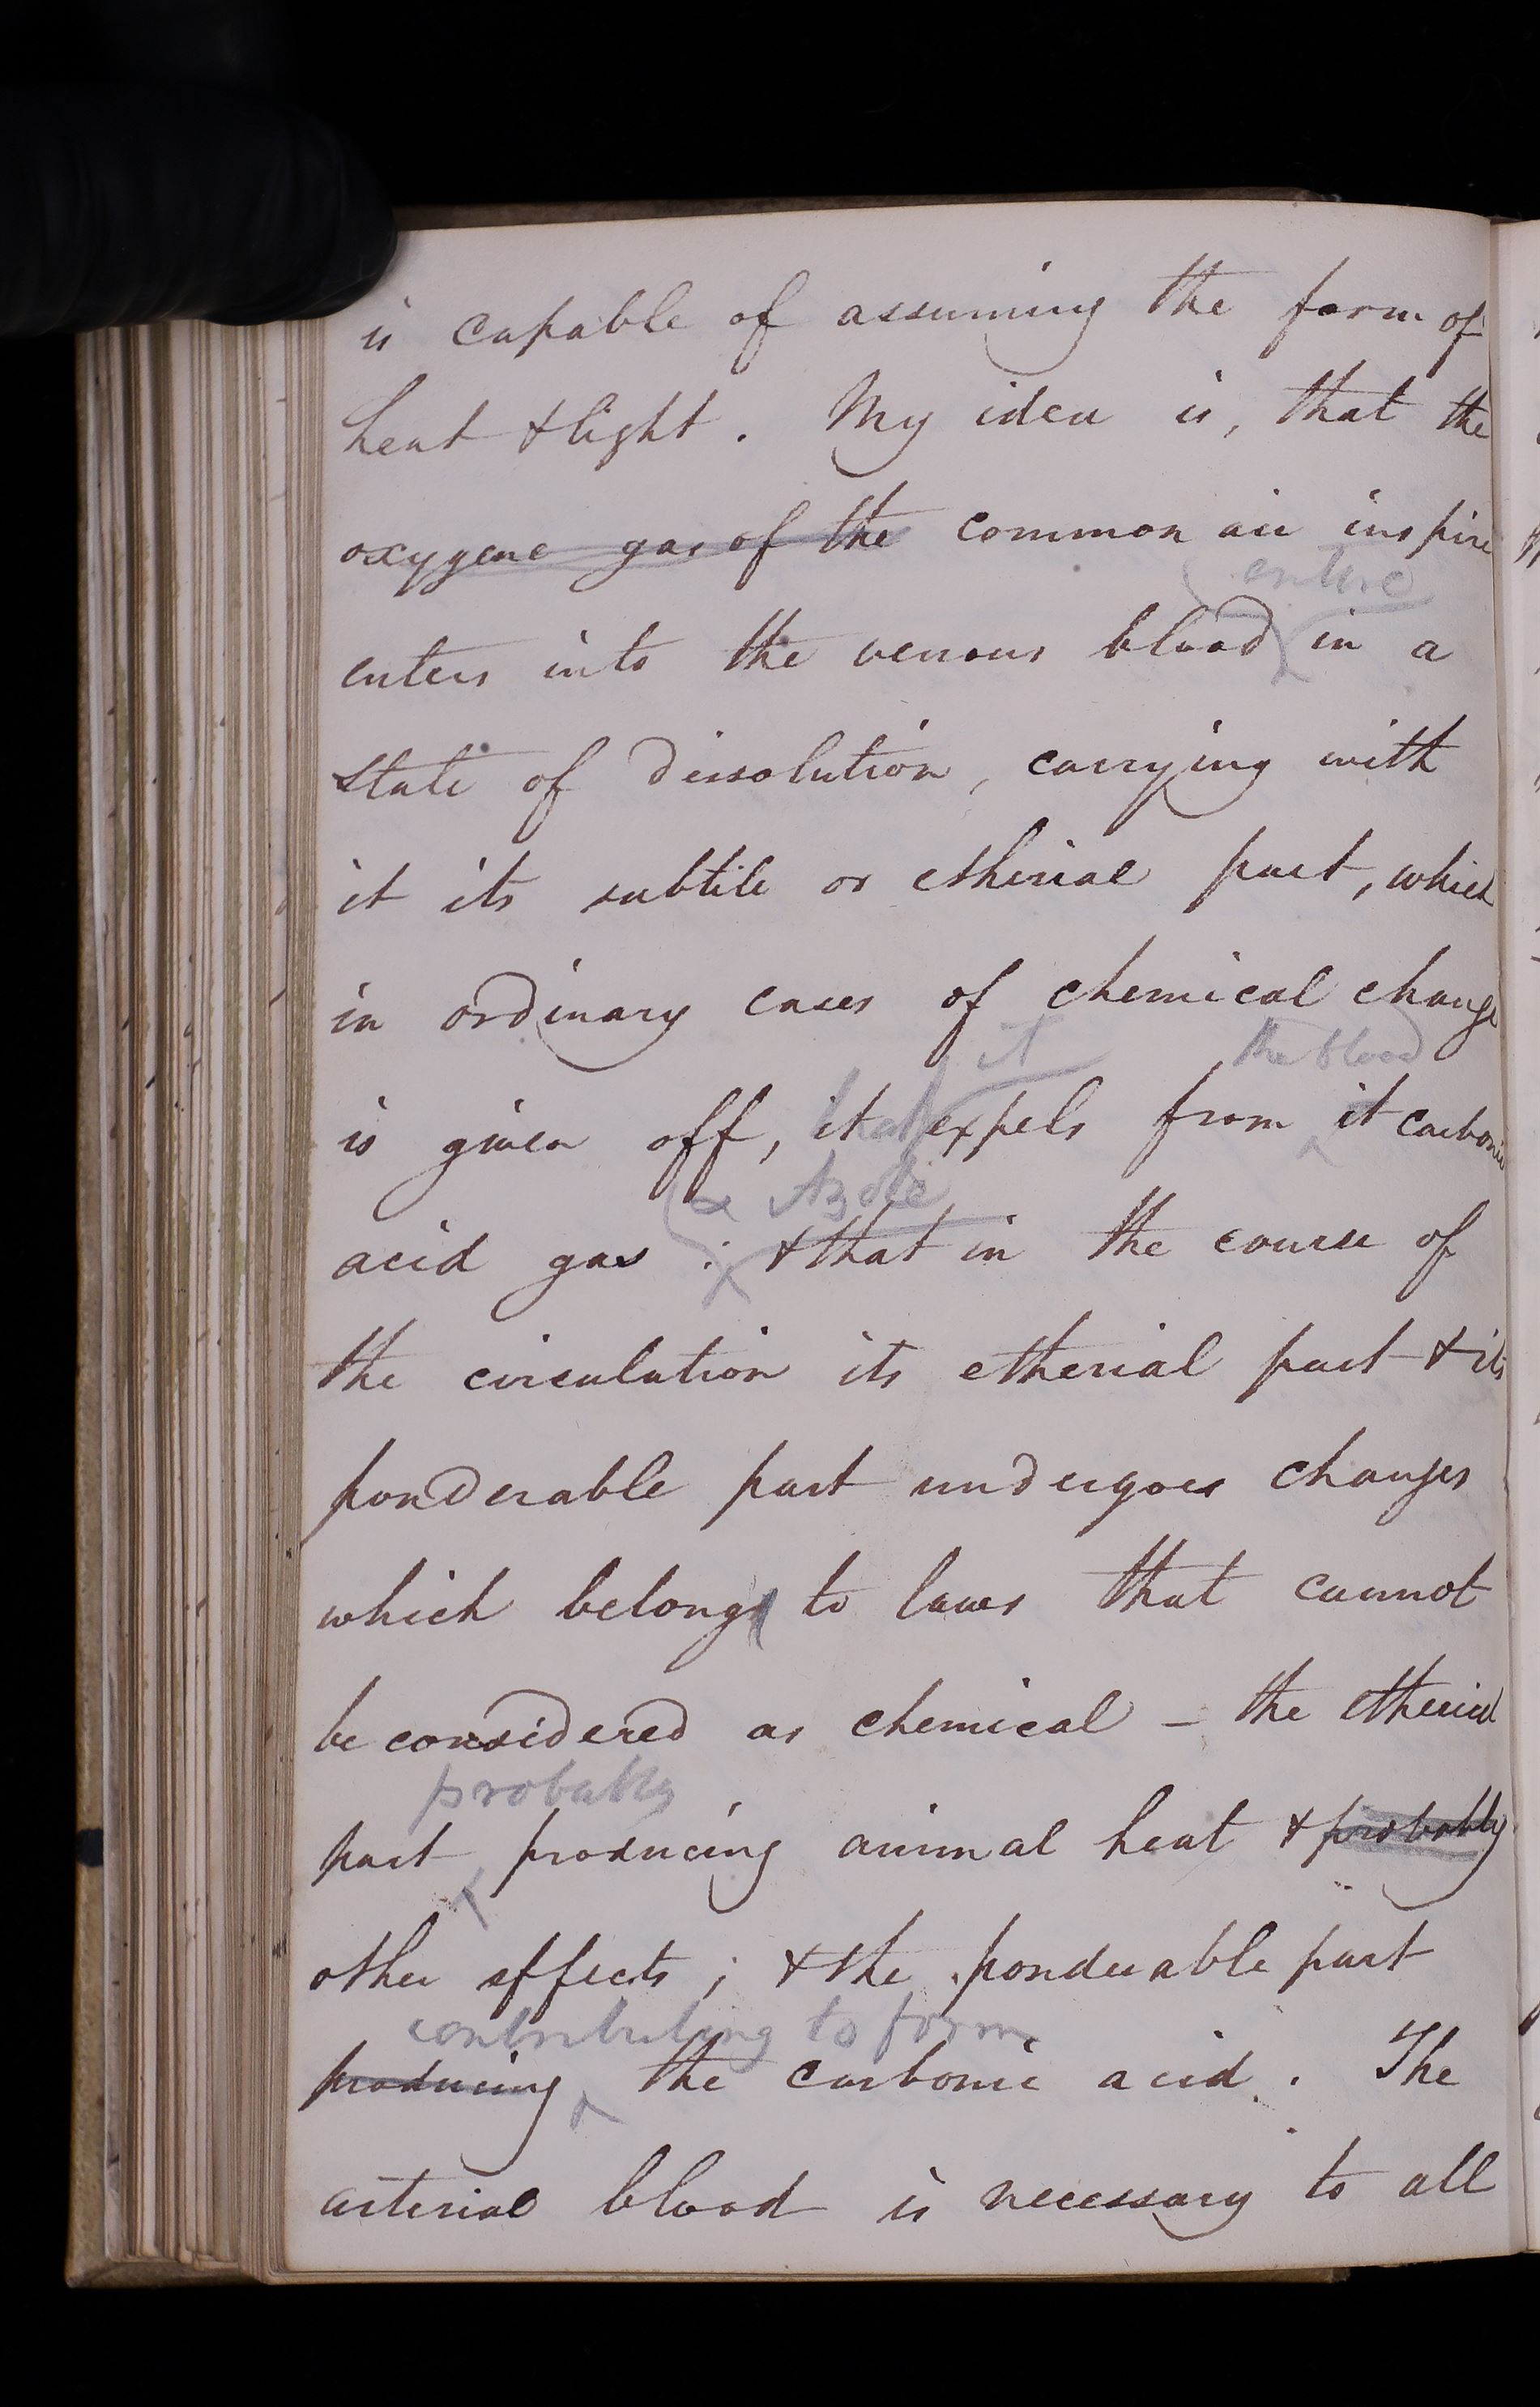 is capable of assuming the form of
heat & light. My idea is, that the
oxygene gas of the common air inspire
entire
enters into the venous blood in a
state of dissolution, carrying with
it its subtile or etherial part, which
in ordinary cases of chemical change
it the blood
is given off, it expels from it carbonic
& Azote
acid gas : & that in the course of
the circulation its etherial part & its
ponderable part undergoes changes
which belongs to laws that cannot
be considered as chemical – the etherial
probably
part producing animal heat & probably
other effects; & the ponderable part
contributing to form
producing the carbonic acid. The
arterial blood is necessary to all